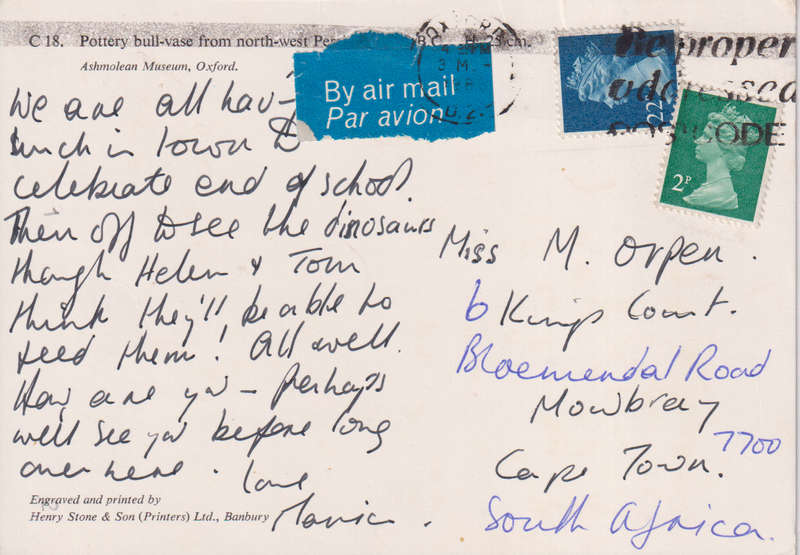 C 18. Pottery bull-vase from north-west Per 23 cm.
Ashmolean Museum, Oxford.
By air mail
Par avion
OXFORD
22
2P
Be proper
addressed
POSTCODE
We are all hav-
lunch in town to
celebrate end of school.
Then off to see the dinosaurs
though Helen & Tom
think they'll be able to
feed them! All well.
How are you - perhaps
we'll see you before long
over here. love
Miss M. Orpen.
6 Kings Court.
Bloemendal Road
Mowbray
7700
Cape Town.
South Africa.
Engraved and printed by
Henry Stone & Son (Printers) Ltd., Banbury